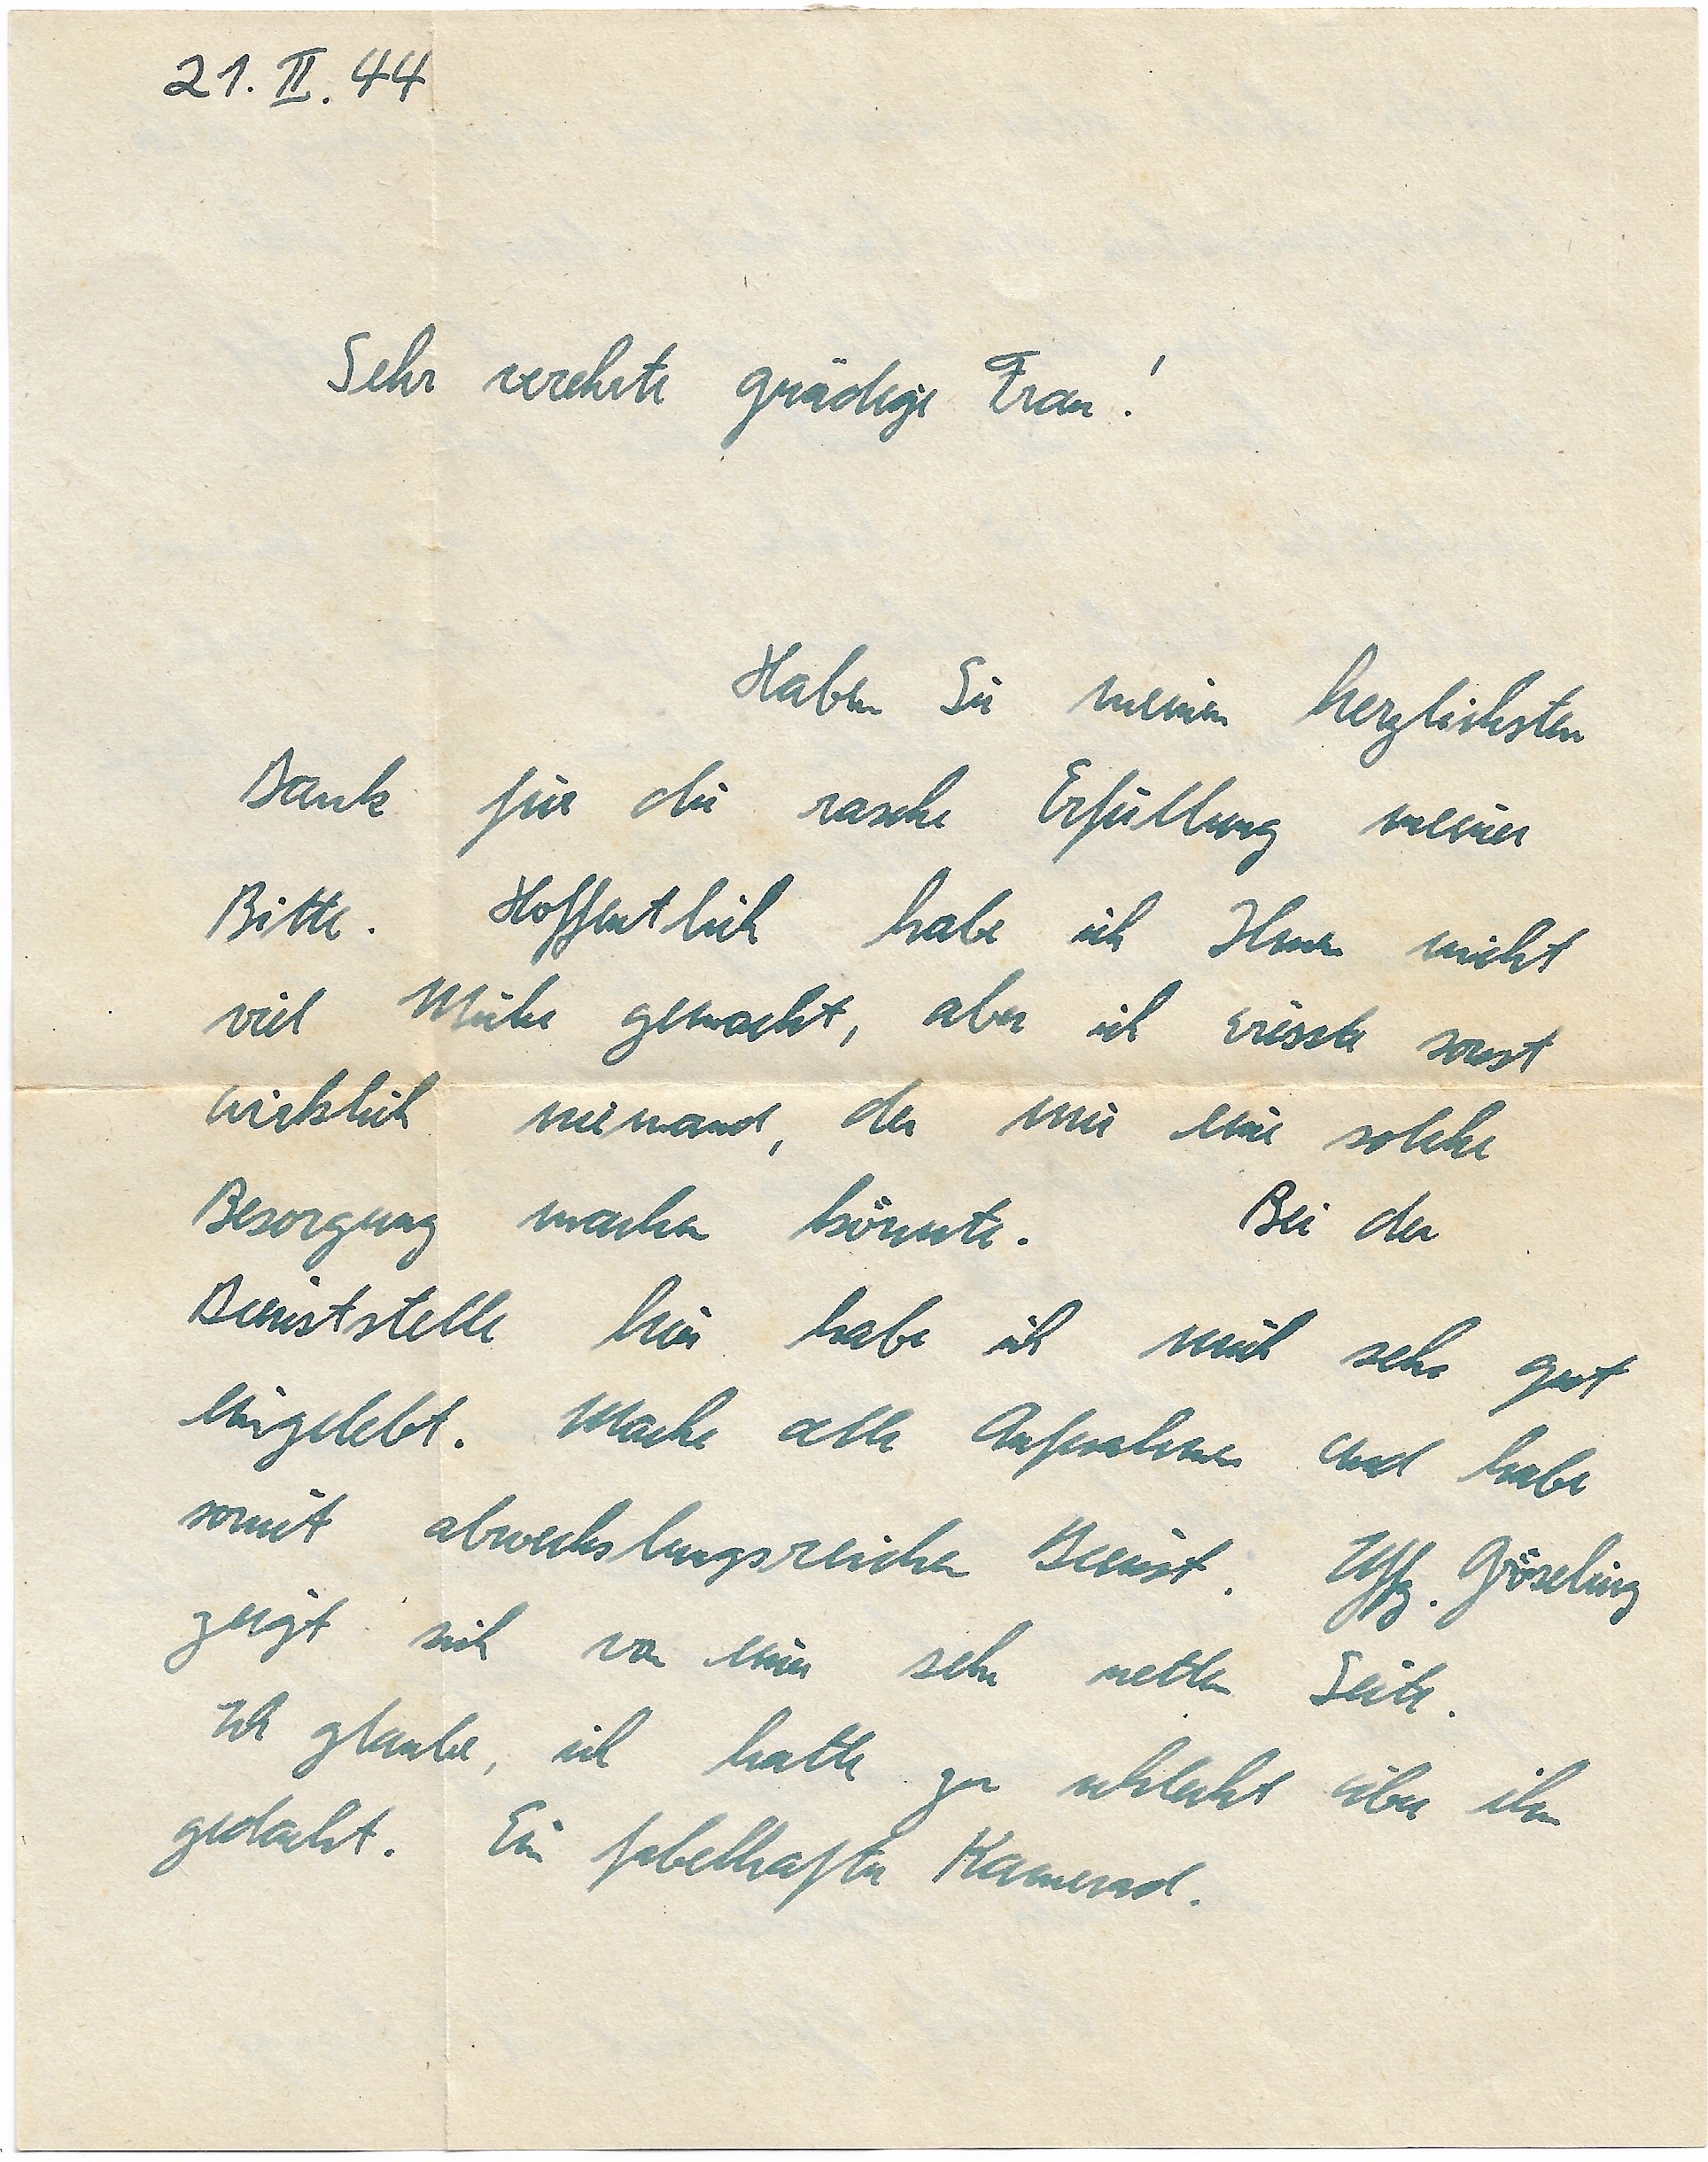 21. II. 44
Sehr verehrte gnädige Frau!
Haben Sie meinen herzlichsten
Dank für die rasche Erfüllung meiner
Bitte. Hoffentlich habe ich Ihnen nicht
viel Mühe gemacht, aber ich wüsste sonst
wirklich niemand, der mir eine solche
Besorgung machen könnte. Bei der
Dienststelle hier habe ich mich sehr gut
eingelebt. Mache alle Aufnahmen und habe
somit abwechslungsreichen Dienst. Uffz. Gröseling
zeigt sich von einer sehr netten Seite.
Ich glaube, ich hatte zu schlecht über ihn
gedacht. Ein fabelhafter Kamerad.